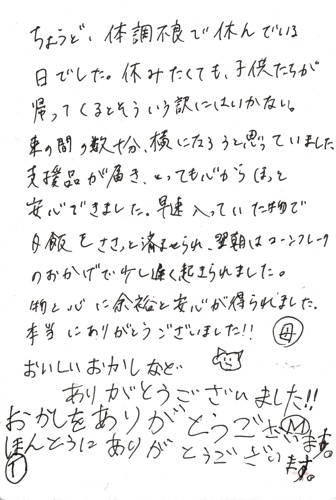 ちょうど、体調不良で休んでいる
日でした。休みたくても、子供たちが
帰ってくるとそういう訳にはいかない。
束の間の数十分、横になろうと思っていました
支援品が届き、とっても心からほっと
安心できました。早速入っていた物で
夕飯をささっと済ませられ、翌朝はコーンフレーク
のおかげで少し遅く起きられました。
物と心に余裕と安心が得られました。
本当にありがとうございました!! 母
おいしいおかしなど
ありがとうございました!!
おかしをありがとうございます。 M
ほんとうにありがとうござい
ます。
T